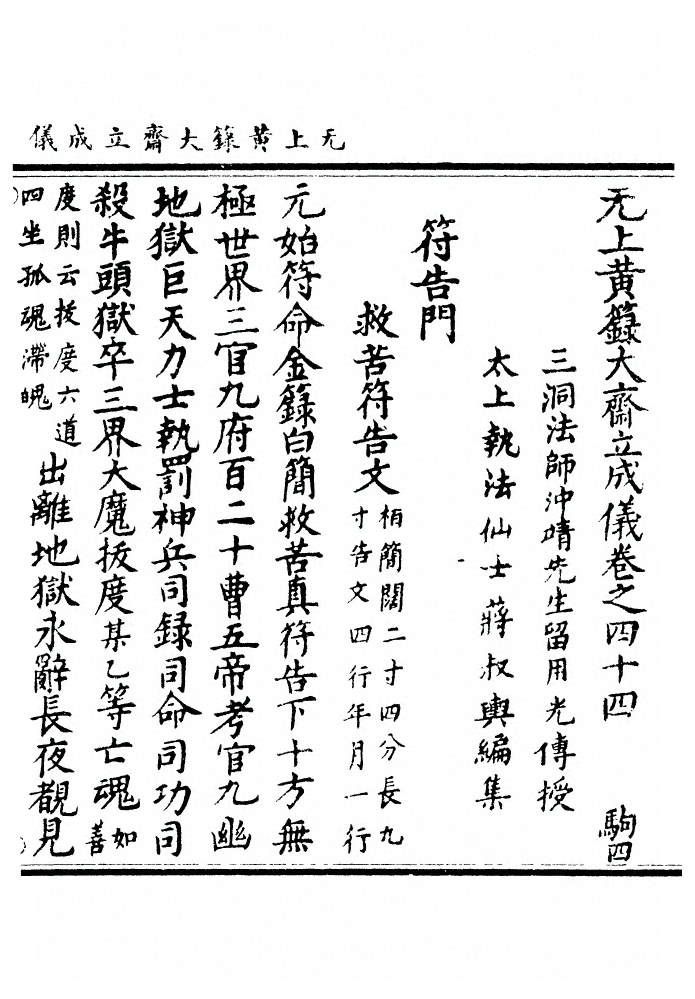 无上黃籙大齋立成儀
无上黃籙大齋立成儀卷之四十四　駒四
三洞法師沖靖先生留用光傳授
太上執法仙士蔣叔輿編集
符告門
救苦符告文
栢簡闊二寸四分長九
寸告文四行年月一行
元始符命金籙白簡救苦真符告下十方無
極世界三官九府百二十曹五帝考官九幽
地獄巨天力士執罰神兵司録司命司功司
殺牛頭獄卒三界大魔拔度某乙等亡魂如
善
度則云拔度六道
四坐孤魂滯魄
出離地獄永辭長夜覩見